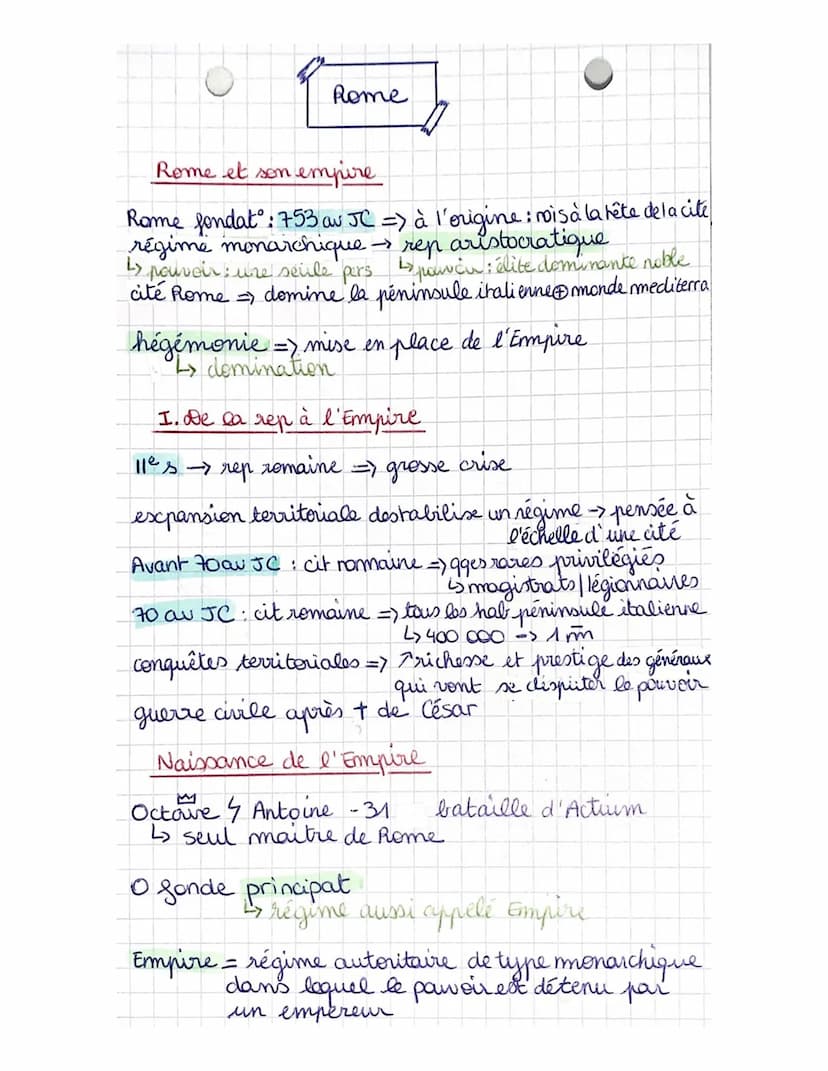 Rome
Rome et son empire
Rome fondat° : 753 av JC => à l'origine : rois à la tête de la cité
régime monarchique → rep aristocratique
↳ pouvoir : une seule pers ↳ pouvoir : élite dominante noble
cité Rome => domine la péninsule italienne ⊕ monde mediterra
hégémonie => mise en place de l'Empire
↳ domination
I. De la rep à l'Empire
IIe s → rep romaine => grosse crise
expansion territoriale destabilise un régime → pensée à
l'échelle d'une cité
Avant 70 av JC : cit romaine => qqes rares privilégiés
↳ magistrats/légionnaires
70 av JC : cit romaine => tous les hab péninsule italienne
↳ 400 000 -> 1 m
conquêtes territoriales => ↗ richesse et prestige des généraux
qui vont se disputer le pouvoir
guerre civile après † de César
Naissance de l'Empire
Octave ϟ Antoine - 31 bataille d'Actium
↳ seul maitre de Rome
O fonde principat
↳ régime aussi appelé Empire
Empire = régime autoritaire de type monarchique
dans lequel le pouvoir est détenu par
un empereur